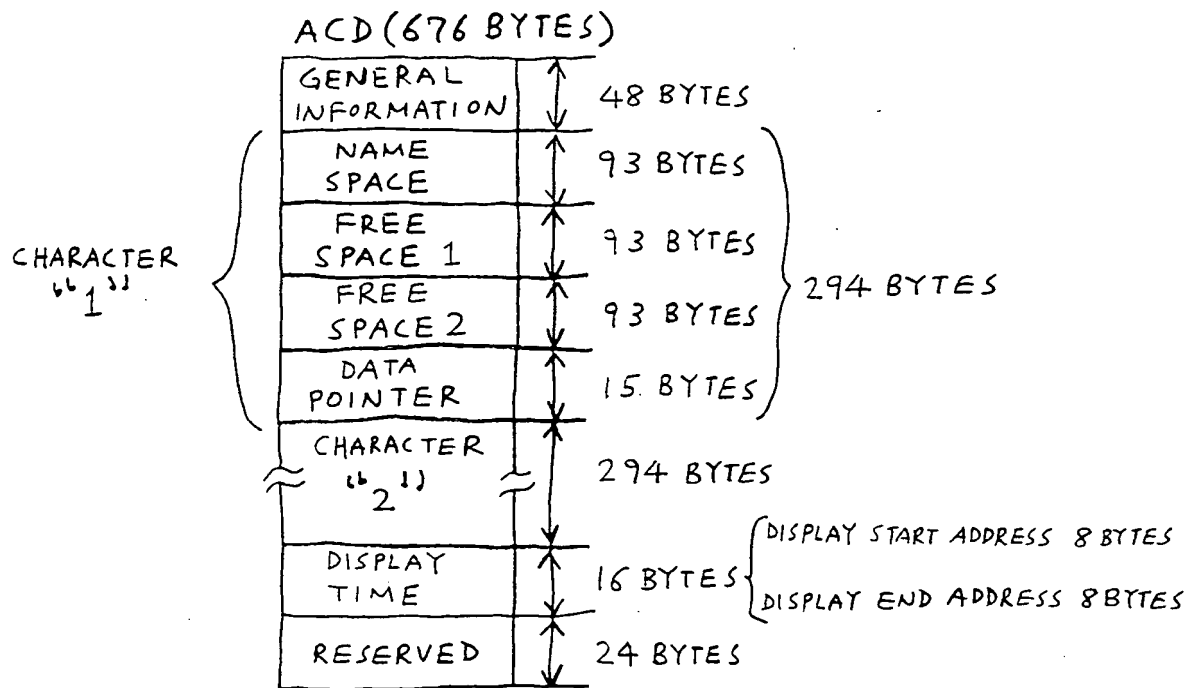 ACD (676 BYTES)
GENERAL
INFORMATION
48 BYTES
NAME
SPACE
93 BYTES
FREE
SPACE 1
93 BYTES
FREE
SPACE 2
93 BYTES
DATA
POINTER
15 BYTES
CHARACTER
“1”
294 BYTES
CHARACTER
“2”
294 BYTES
DISPLAY
TIME
16 BYTES
DISPLAY START ADDRESS 8 BYTES
DISPLAY END ADDRESS 8 BYTES
RESERVED
24 BYTES